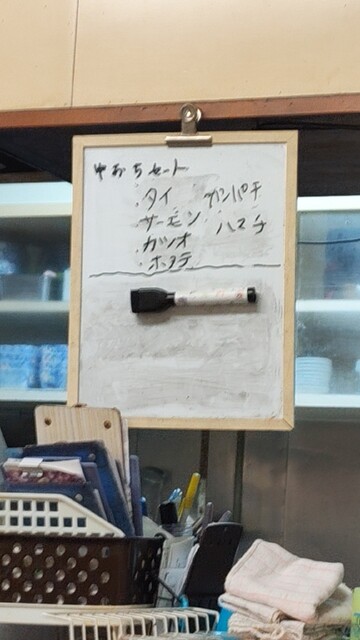 やおちセット
・タイ ・カンパチ
・サーモン ・ハマチ
・カツオ
・ホタテ